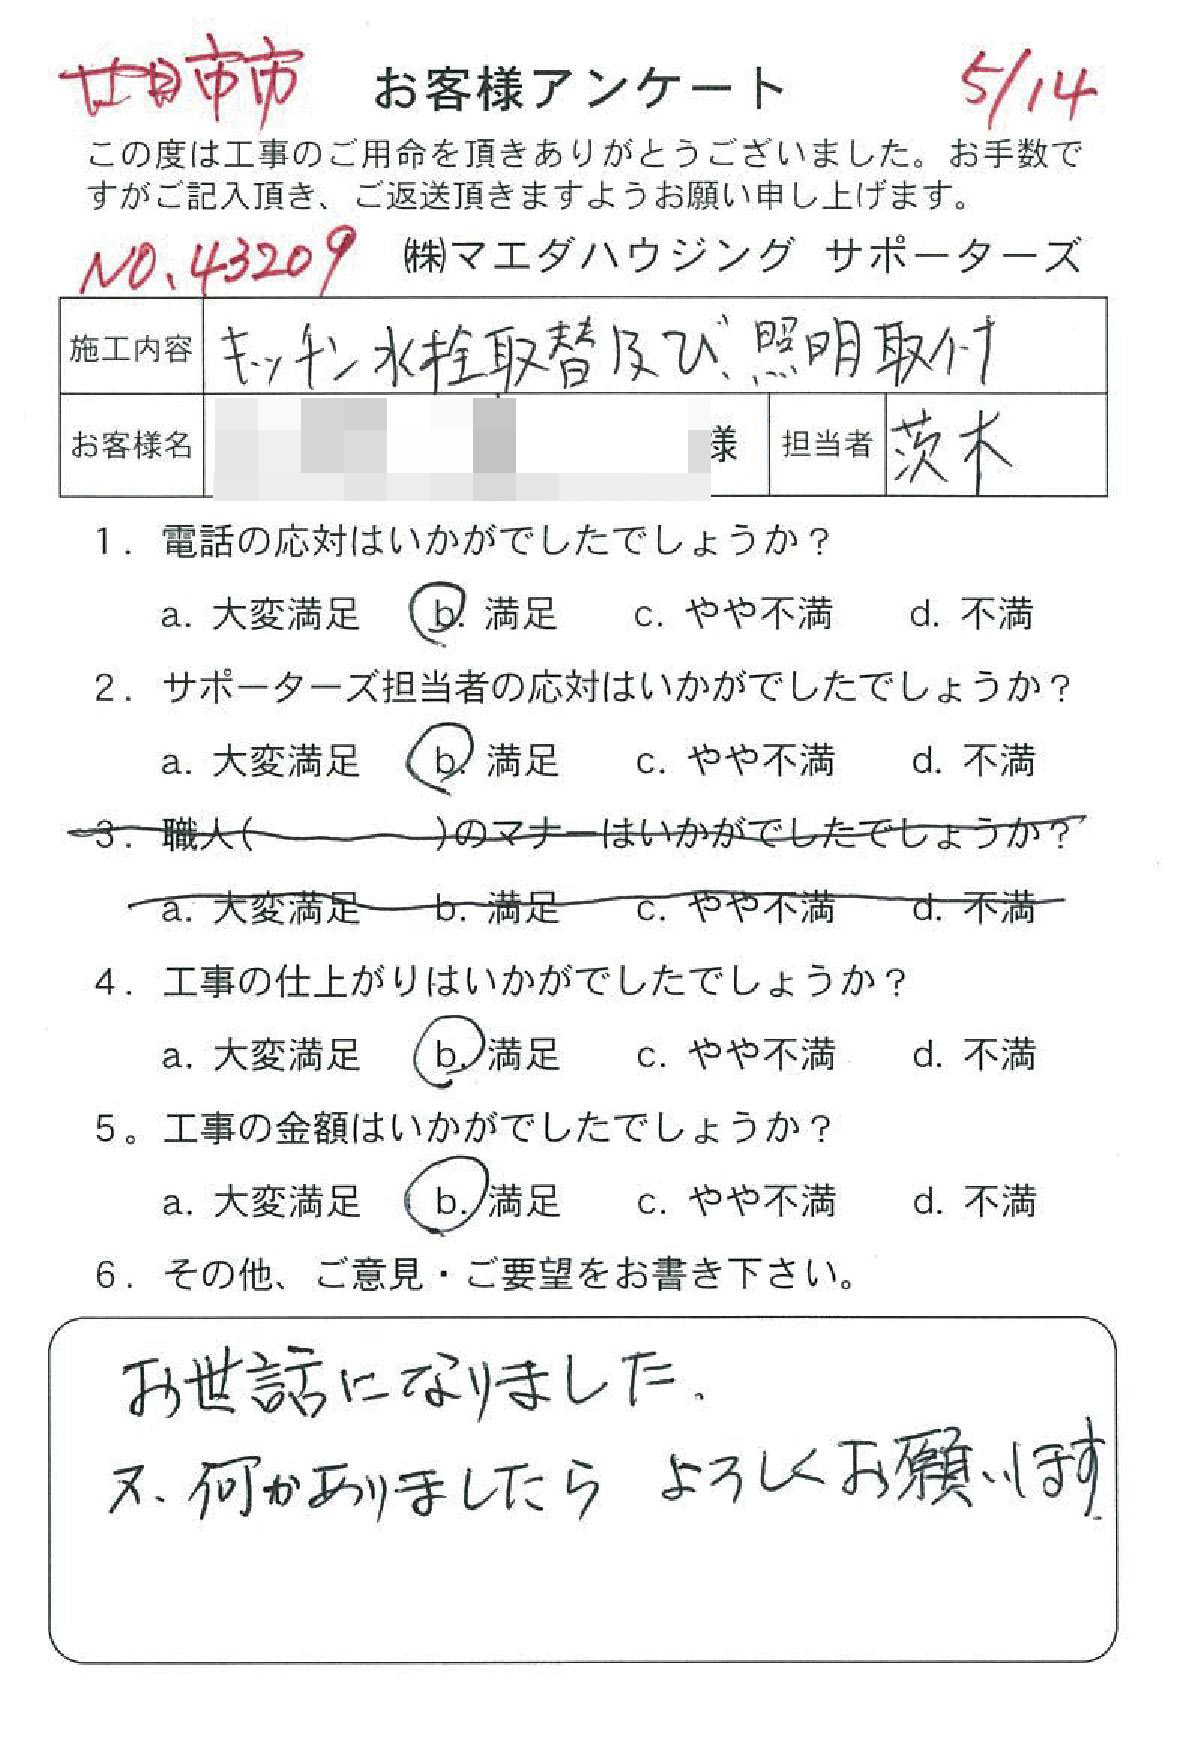 廿日市市 お客様アンケート 5/14
この度は工事のご用命を頂きありがとうございました。お手数で
すがご記入頂き、ご返送頂きますようお願い申し上げます。
NO.43209 ㈱マエダハウジング サポーターズ
施工内容 キッチン水栓取替及び、照明取付
お客様名 様 担当者 茨木
1. 電話の応対はいかがでしたでしょうか？
a. 大変満足 b. 満足 c. やや不満 d. 不満
2. サポーターズ担当者の応対はいかがでしたでしょうか？
a. 大変満足 b. 満足 c. やや不満 d. 不満
3. 職人( )のマナーはいかがでしたでしょうか？
a. 大変満足 b. 満足 c. やや不満 d. 不満
4. 工事の仕上がりはいかがでしたでしょうか？
a. 大変満足 b. 満足 c. やや不満 d. 不満
5。工事の金額はいかがでしたでしょうか？
a. 大変満足 b. 満足 c. やや不満 d. 不満
6. その他、ご意見・ご要望をお書き下さい。
お世話になりました.
又、何かありましたら よろしくお願いします.